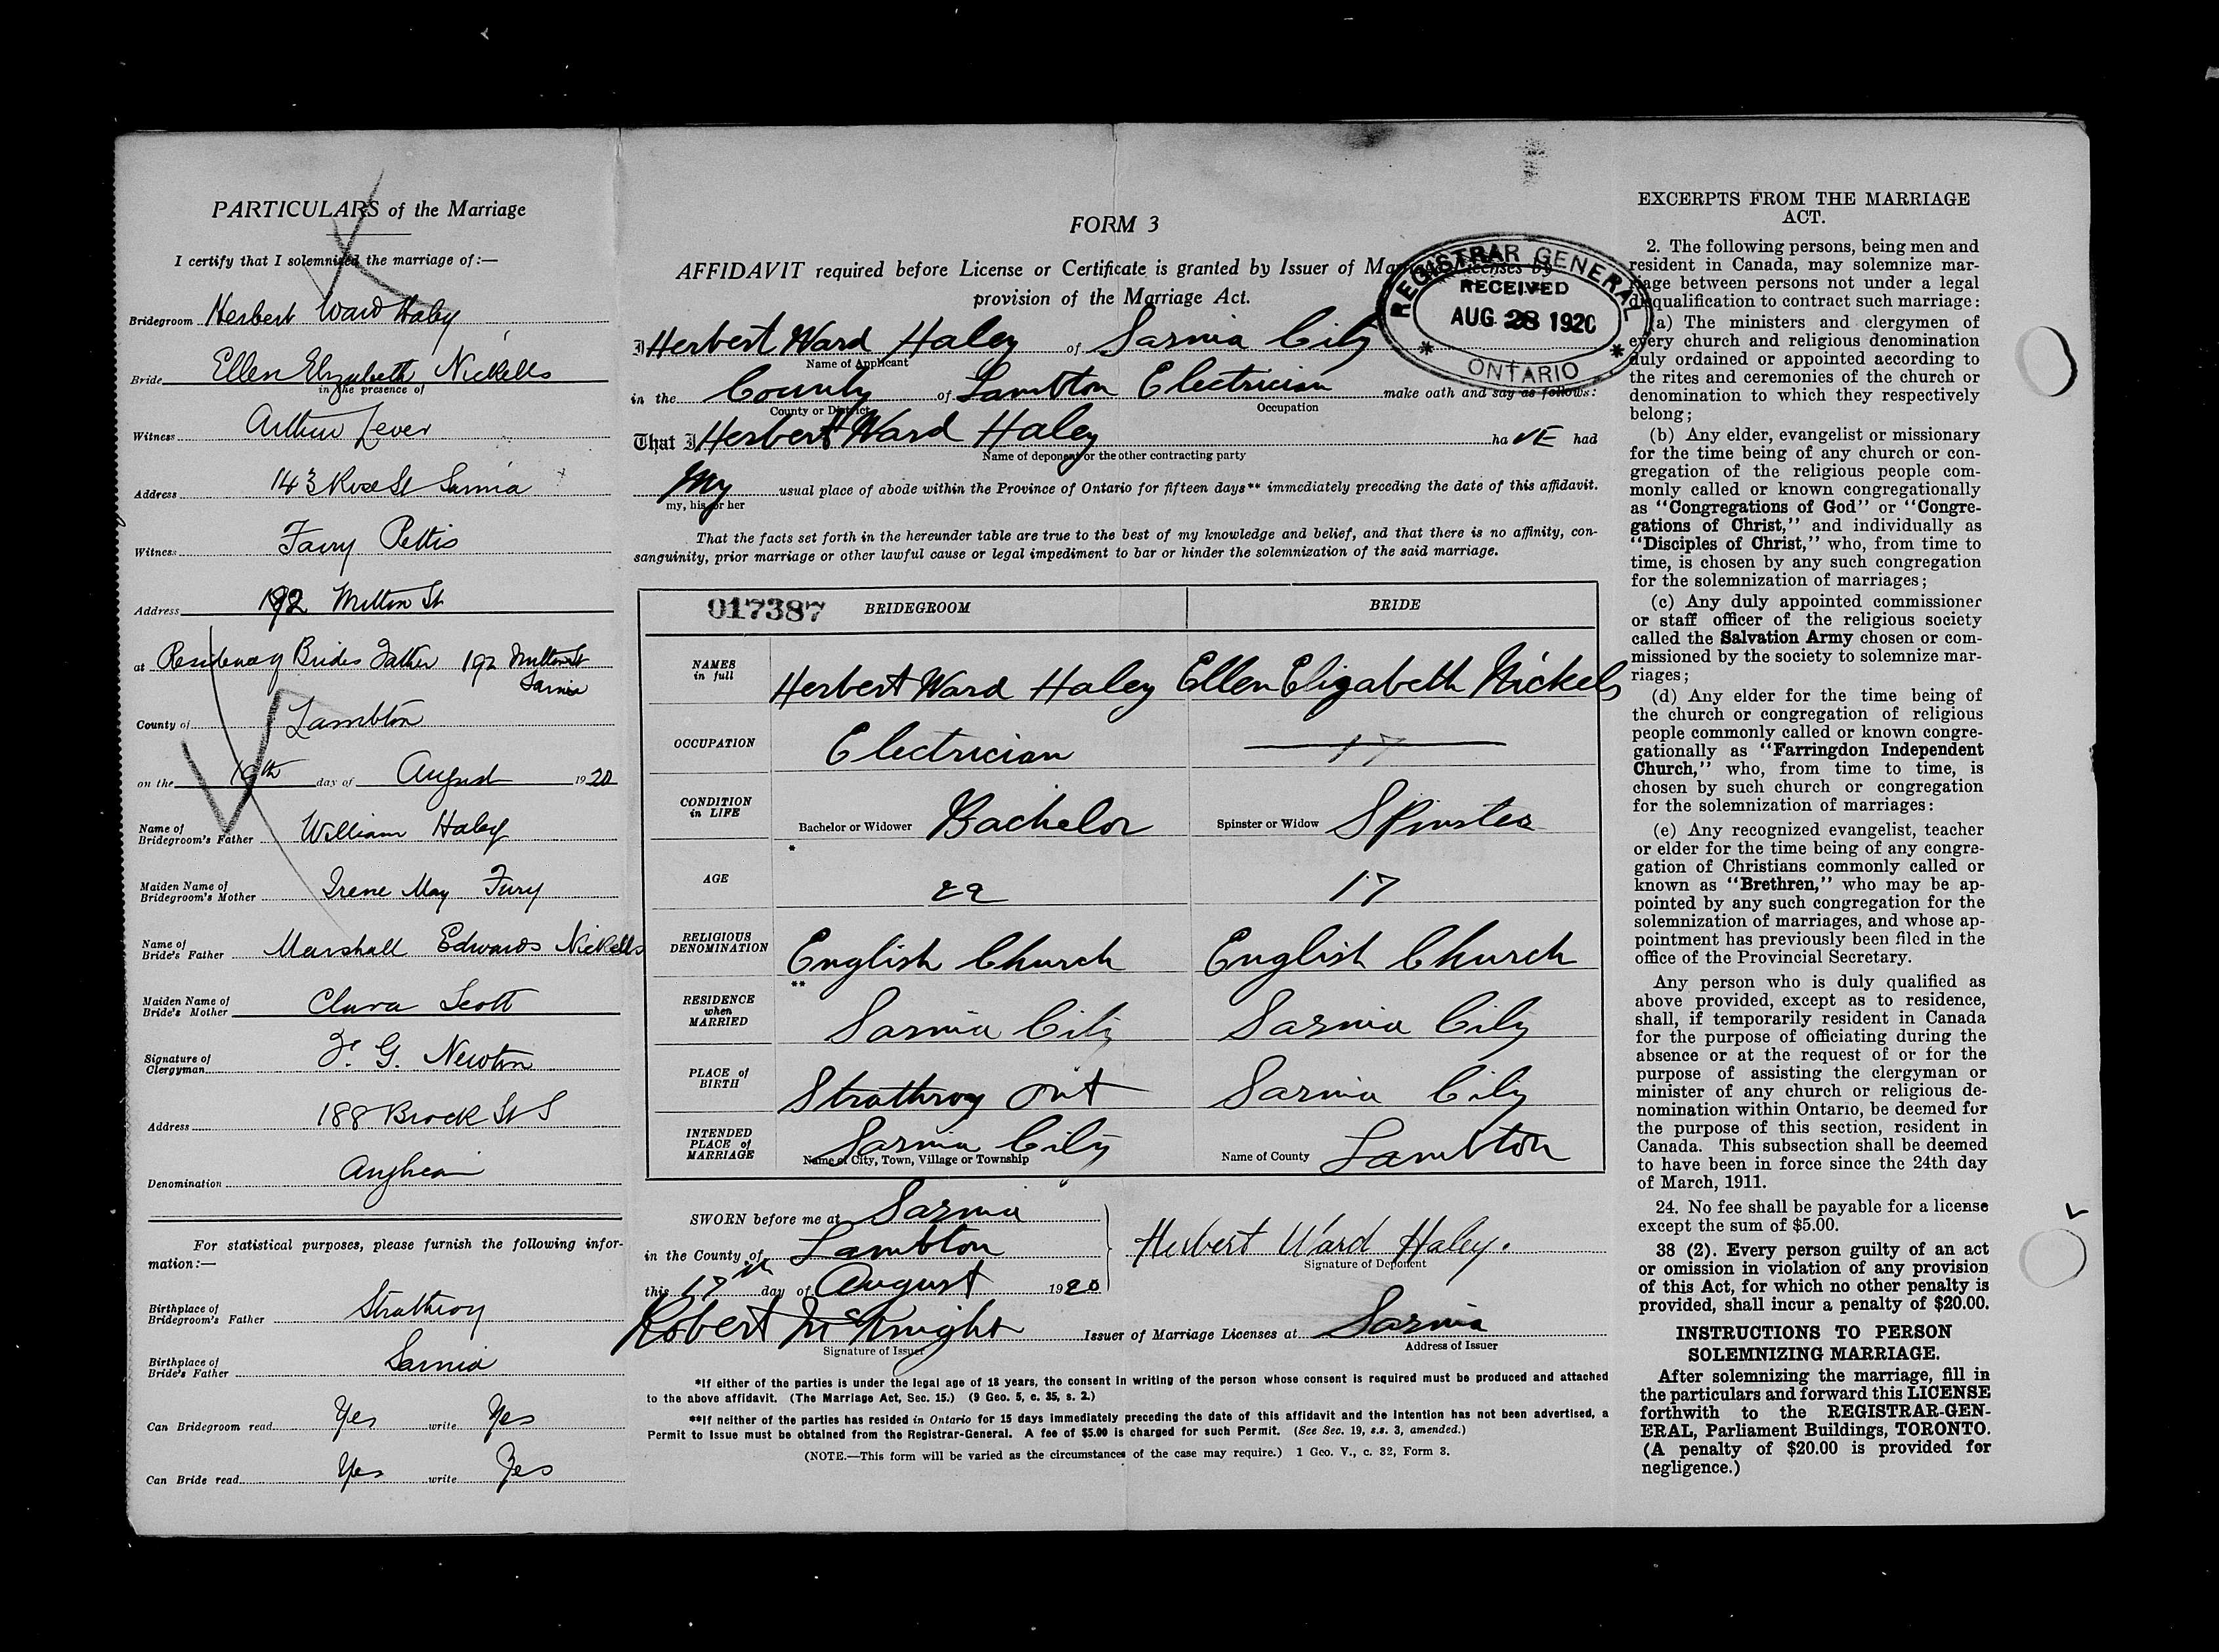 PARTICULARS of the Marriage
I certify that I solemnized the marriage of:—
Bridegroom Herbert Ward Haley
Bride Ellen Elizabeth Nickells
in the presence of
Witness Arthur Lever
Address 143 Rose St Sarnia
Witness Pettis
Address 192 Mitton St
at Residence of Brides Father 192 Mitton St
Sarnia
County of Lambton
on the 19th day of August 1920
Name of Bridegroom's Father William Haley
Maiden Name of Bridegroom's Mother Irene May Fury
Name of Bride's Father Marshall Edwards Nickells
Maiden Name of Bride's Mother Clara Scott
Signature of Clergyman F. G. Newton
Address 188 Brock St S
Denomination Anglican
For statistical purposes, please furnish the following infor-
mation:—
Birthplace of Bridegroom's Father Strathroy
Birthplace of Bride's Father Sarnia
Can Bridegroom read Yes write Yes
Can Bride read Yes write Yes
FORM 3
AFFIDAVIT required before License or Certificate is granted by Issuer of Marriage Licenses by
provision of the Marriage Act.
REGISTRAR GENERAL
RECEIVED
AUG 28 1920
ONTARIO
I Herbert Ward Haley of Sarnia City
Name of Applicant
in the County of Lambton Electrician make oath and say as follows:
County or District Occupation
That I Herbert Ward Haley haVE had
Name of deponent or the other contracting party
My usual place of abode within the Province of Ontario for fifteen days** immediately preceding the date of this affidavit.
my, his or her
That the facts set forth in the hereunder table are true to the best of my knowledge and belief, and that there is no affinity, con-
sanguinity, prior marriage or other lawful cause or legal impediment to bar or hinder the solemnization of the said marriage.
017387 BRIDEGROOM BRIDE
NAMES in full Herbert Ward Haley Ellen Elizabeth Nickels
OCCUPATION Electrician 17
CONDITION in LIFE Bachelor or Widower Bachelor Spinster or Widow Spinster
*
AGE 22 17
RELIGIOUS DENOMINATION English Church English Church
**
RESIDENCE when MARRIED Sarnia City Sarnia City
PLACE of BIRTH Strathroy Ont Sarnia City
INTENDED PLACE of MARRIAGE Sarnia City Name of County Lambton
Name of City, Town, Village or Township
SWORN before me at Sarnia
in the County of Lambton
this 17th day of August 1920
Herbert Ward Haley.
Signature of Deponent
Robert McKnight Issuer of Marriage Licenses at Sarnia
Signature of Issuer Address of Issuer
*If either of the parties is under the legal age of 18 years, the consent in writing of the person whose consent is required must be produced and attached
to the above affidavit. (The Marriage Act, Sec. 15.) (9 Geo. 5, c. 35, s. 2.)
**If neither of the parties has resided in Ontario for 15 days immediately preceding the date of this affidavit and the intention has not been advertised, a
Permit to Issue must be obtained from the Registrar-General. A fee of $5.00 is charged for such Permit. (See Sec. 19, s.s. 3, amended.)
(NOTE.—This form will be varied as the circumstances of the case may require.) 1 Geo. V., c. 32, Form 3.
EXCERPTS FROM THE MARRIAGE
ACT.
2. The following persons, being men and
resident in Canada, may solemnize mar-
riage between persons not under a legal
disqualification to contract such marriage:
(a) The ministers and clergymen of
every church and religious denomination
duly ordained or appointed aecording to
the rites and ceremonies of the church or
denomination to which they respectively
belong;
(b) Any elder, evangelist or missionary
for the time being of any church or con-
gregation of the religious people com-
monly called or known congregationally
as "Congregations of God" or "Congre-
gations of Christ," and individually as
"Disciples of Christ," who, from time to
time, is chosen by any such congregation
for the solemnization of marriages;
(c) Any duly appointed commissioner
or staff officer of the religious society
called the Salvation Army chosen or com-
missioned by the society to solemnize mar-
riages;
(d) Any elder for the time being of
the church or congregation of religious
people commonly called or known congre-
gationally as "Farringdon Independent
Church," who, from time to time, is
chosen by such church or congregation
for the solemnization of marriages:
(e) Any recognized evangelist, teacher
or elder for the time being of any congre-
gation of Christians commonly called or
known as "Brethren," who may be ap-
pointed by any such congregation for the
solemnization of marriages, and whose ap-
pointment has previously been filed in the
office of the Provincial Secretary.
Any person who is duly qualified as
above provided, except as to residence,
shall, if temporarily resident in Canada
for the purpose of officiating during the
absence or at the request of or for the
purpose of assisting the clergyman or
minister of any church or religious de-
nomination within Ontario, be deemed for
the purpose of this section, resident in
Canada. This subsection shall be deemed
to have been in force since the 24th day
of March, 1911.
24. No fee shall be payable for a license
except the sum of $5.00.
38 (2). Every person guilty of an act
or omission in violation of any provision
of this Act, for which no other penalty is
provided, shall incur a penalty of $20.00.
INSTRUCTIONS TO PERSON
SOLEMNIZING MARRIAGE.
After solemnizing the marriage, fill in
the particulars and forward this LICENSE
forthwith to the REGISTRAR-GEN-
ERAL, Parliament Buildings, TORONTO.
(A penalty of $20.00 is provided for
negligence.)